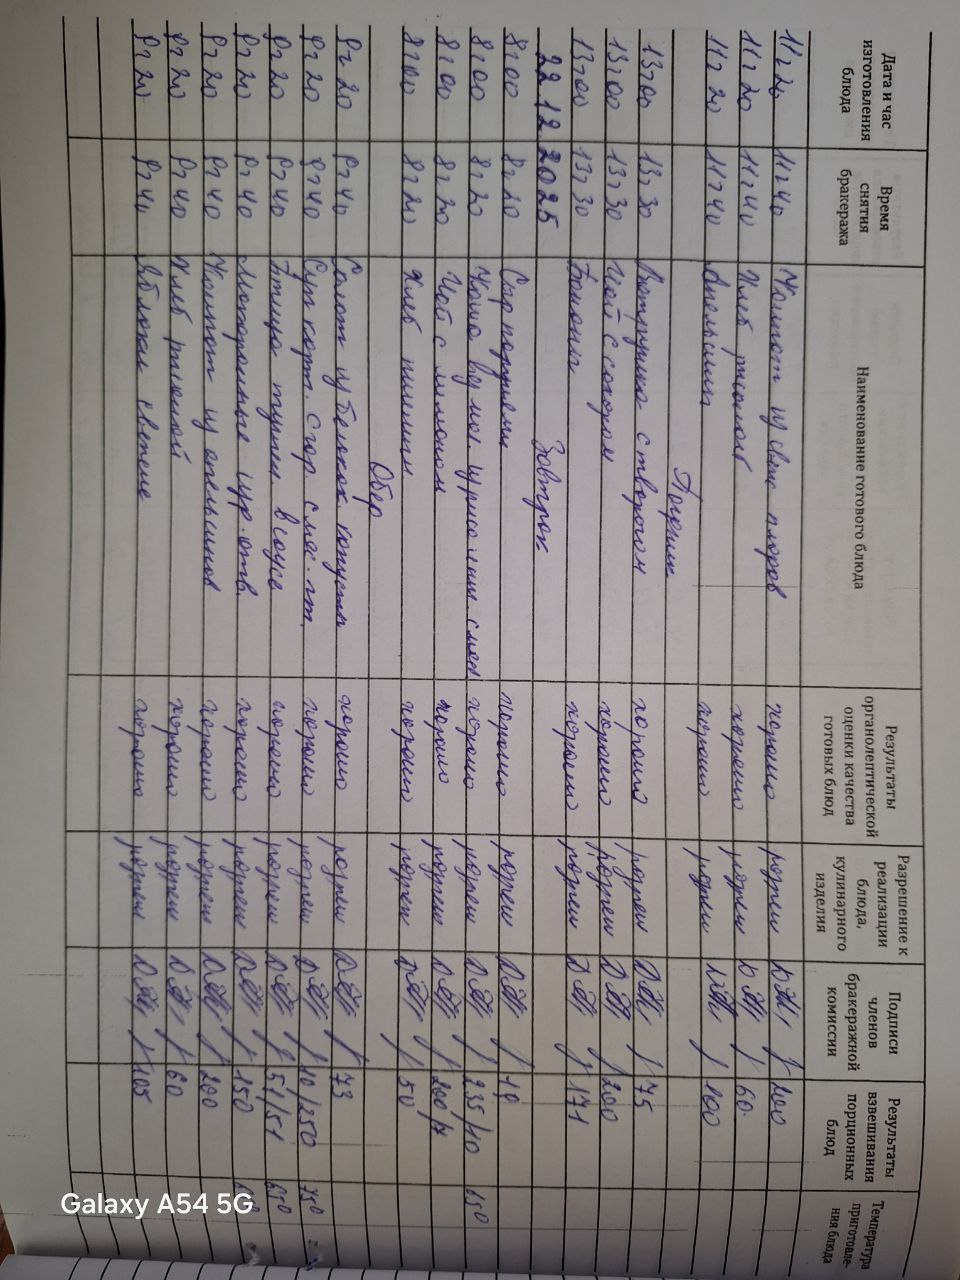 Дата и час изготовления блюда Время снятия бракеража Наименование готового блюда Результаты органолептической оценки качества готовых блюд Разрешение к реализации блюда, кулинарного изделия Подписи членов бракеражной комиссии Результаты взвешивания порционных блюд Температура приготовления блюда
11ч20 11ч40 Компот из свеж плодов хорошо разреш 200
11ч20 11ч40 Хлеб ржаной хорошо разреш 60
11ч20 11ч40 Апельсин хорошо разреш 100
Полдник
13ч00 13ч30 Ватрушка с творогом хорошо разреш 75
13ч00 13ч30 Чай с сахаром хорошо разреш 200
13ч00 13ч30 Бананы хорошо разреш 171
22 12 2025 Завтрак
8ч00 8ч20 Сыр порциями хорошо разреш 10
8ч00 8ч20 Каша вяз мол. хорошо разреш 235/10 650
8ч00 8ч20 Чай с лимоном хорошо разреш 200/7
8ч00 8ч20 Хлеб пшенич хорошо разреш 50
Обед
9ч20 9ч40 Салат из белокоч. капусты хорошо разреш 73
9ч20 9ч40 Суп карт. с гор. с мяс. хорошо разреш 10/250 750
9ч20 9ч40 Птица тушен в соусе хорошо разреш 51/51 650
9ч20 9ч40 Макаронные изд. отв. хорошо разреш 150
9ч20 9ч40 Компот из апельсинов хорошо разреш 200
9ч20 9ч40 Хлеб ржаной хорошо разреш 60
9ч20 9ч40 Яблоки свежие хорошо разреш 105
Galaxy A54 5G